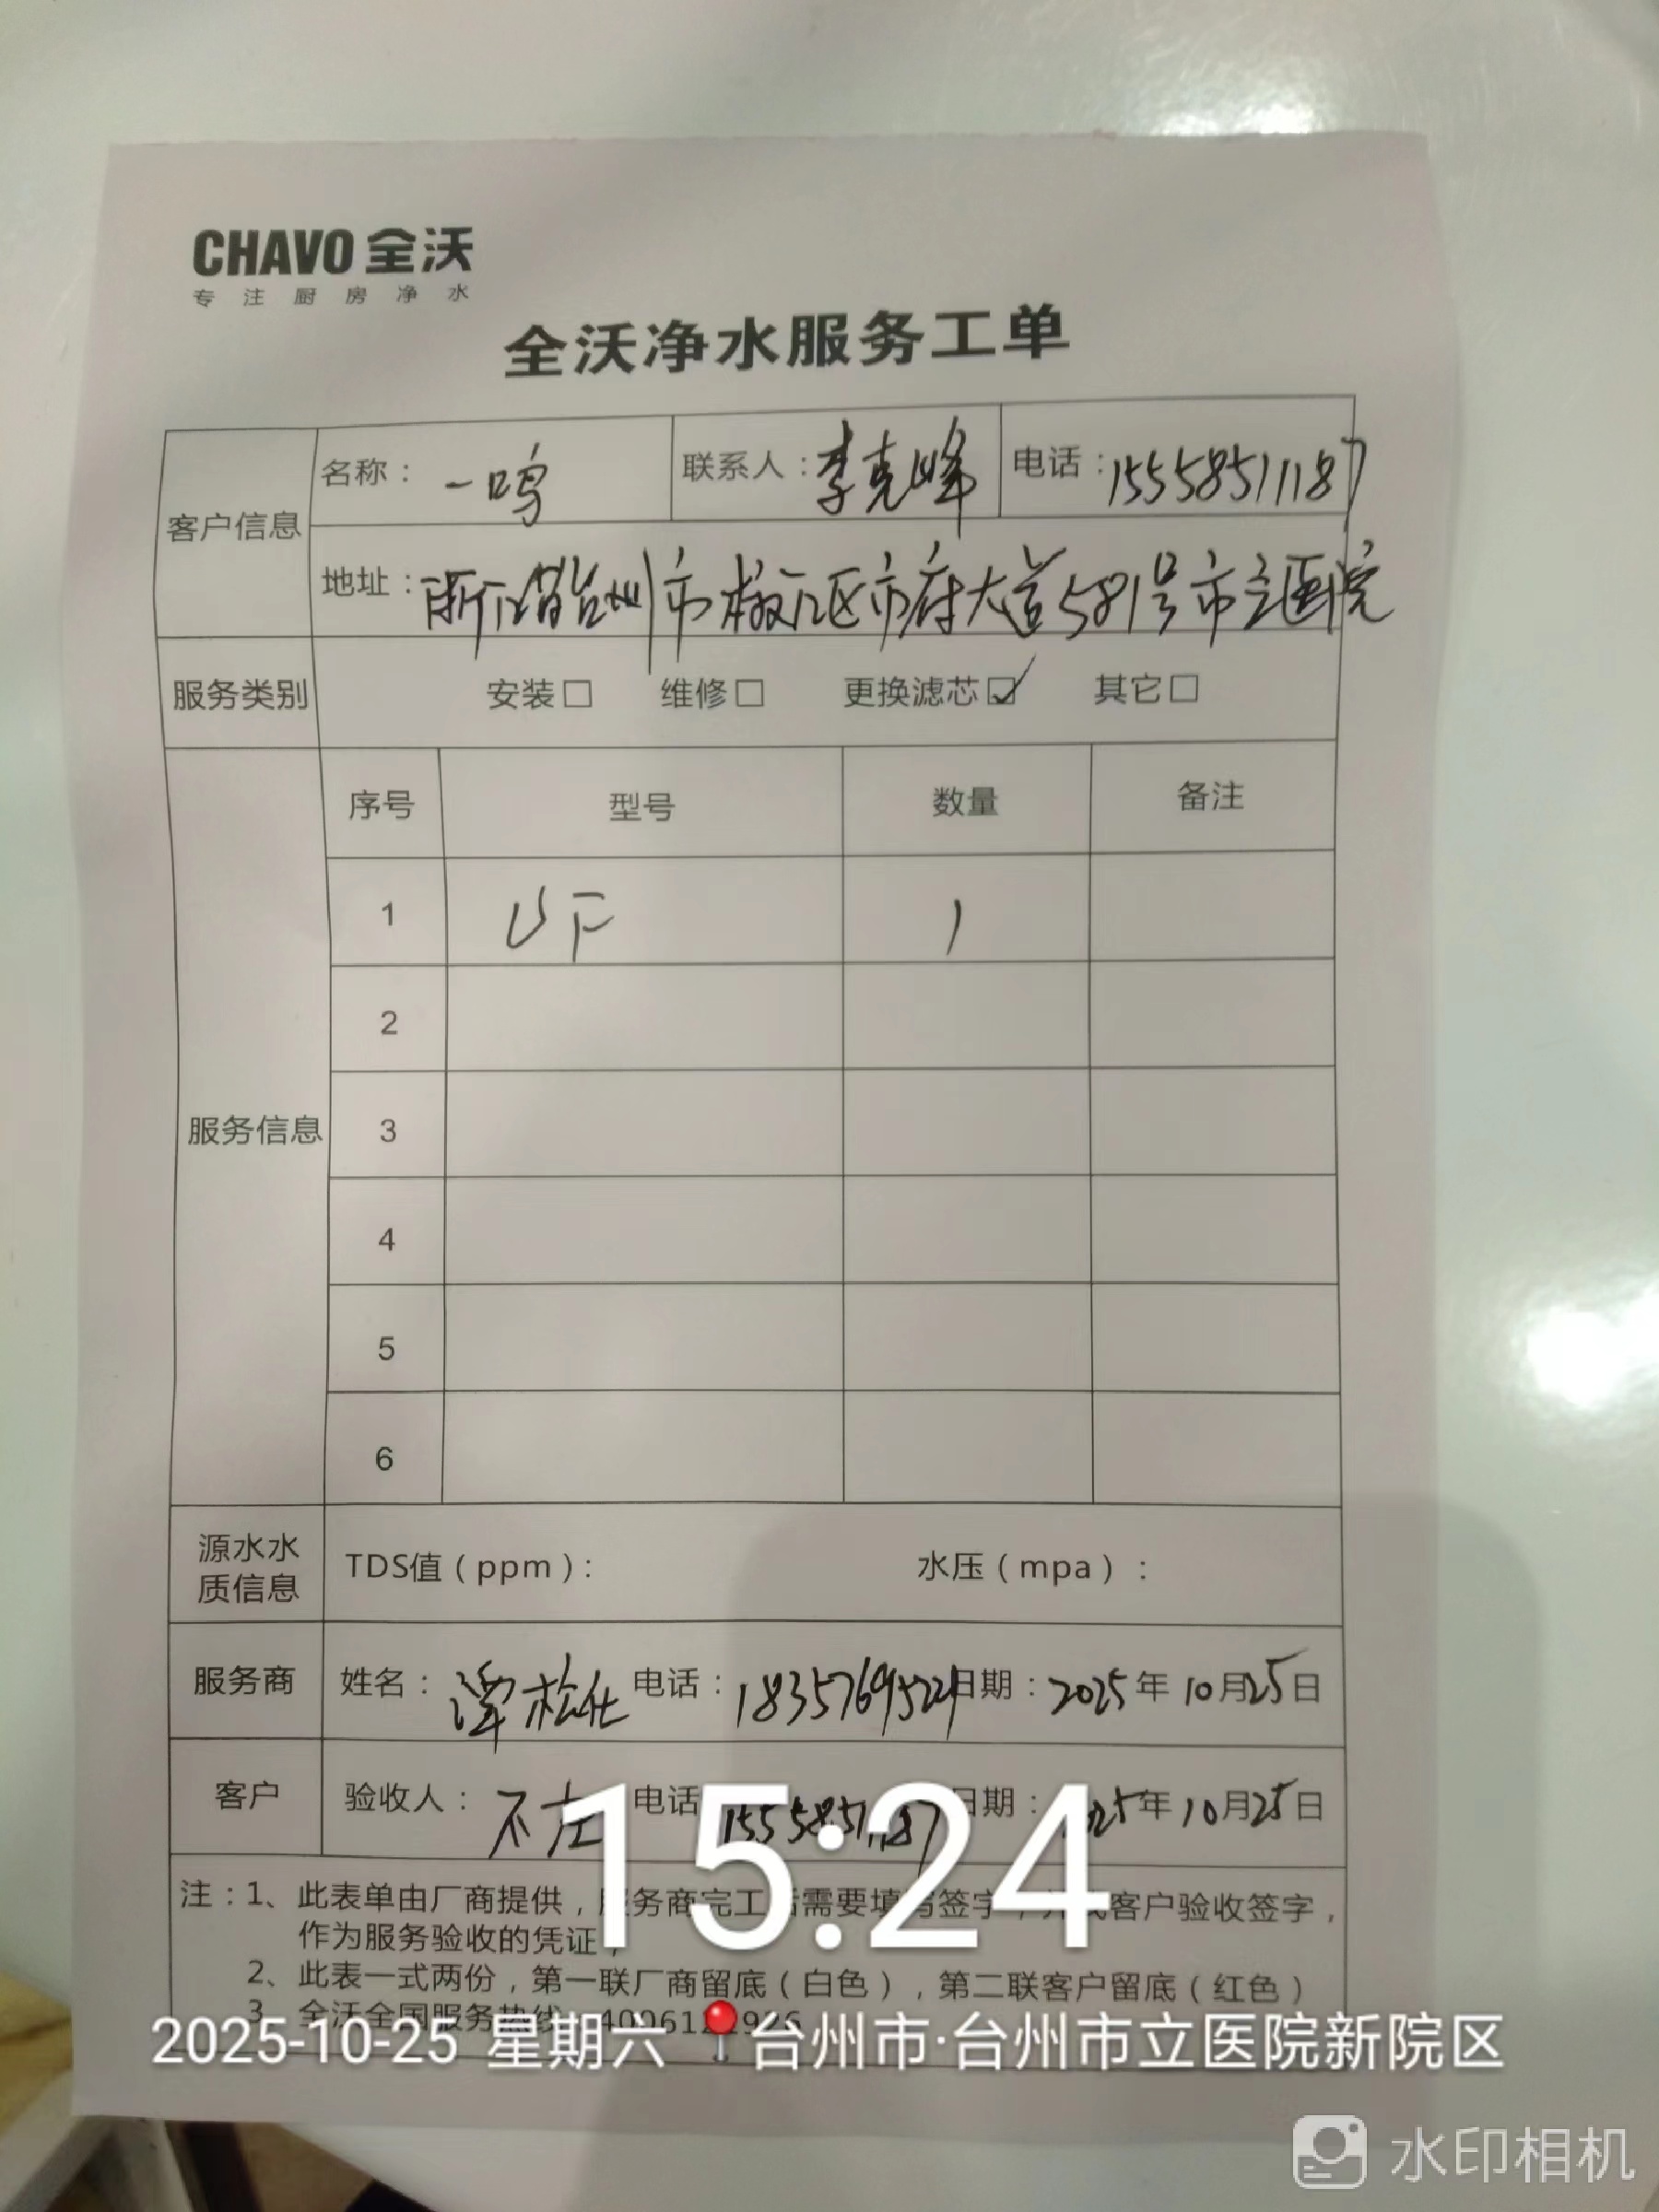 CHAVO 全沃
专注厨房净水
全沃净水服务工单
客户信息 名称：一鸣 联系人：李克峰 电话：15558511187
地址：浙江省台州市椒江区市府大道581号市立医院
服务类别 安装□ 维修□ 更换滤芯☑ 其它□
服务信息 序号 型号 数量 备注
1 UF 1
2
3
4
5
6
源水水质信息 TDS值（ppm）： 水压（mpa）：
服务商 姓名： 电话： 日期：2025年10月25日
客户 验收人： 电话 15558511187 日期： 年10月25日
15:24
注：1、此表单由厂商提供，服务商完工后需要填写签字，客户验收签字，
作为服务验收的凭证
2、此表一式两份，第一联厂商留底（白色），第二联客户留底（红色）
3、全沃全国服务热线
2025-10-25 星期六 台州市·台州市立医院新院区
水印相机